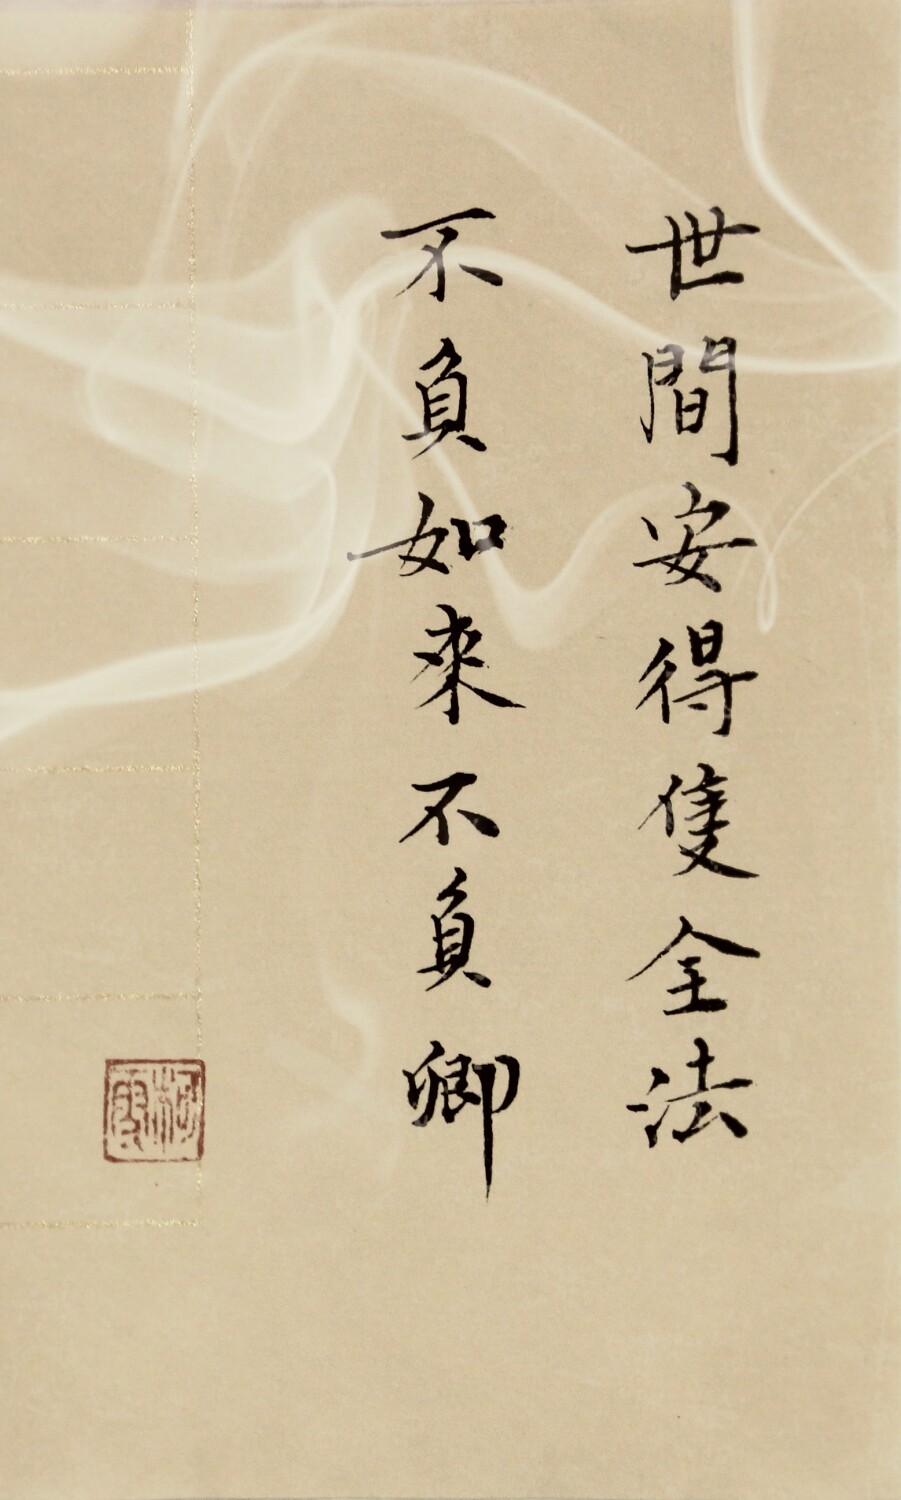 世間安得隻全法
不負如來不負卿